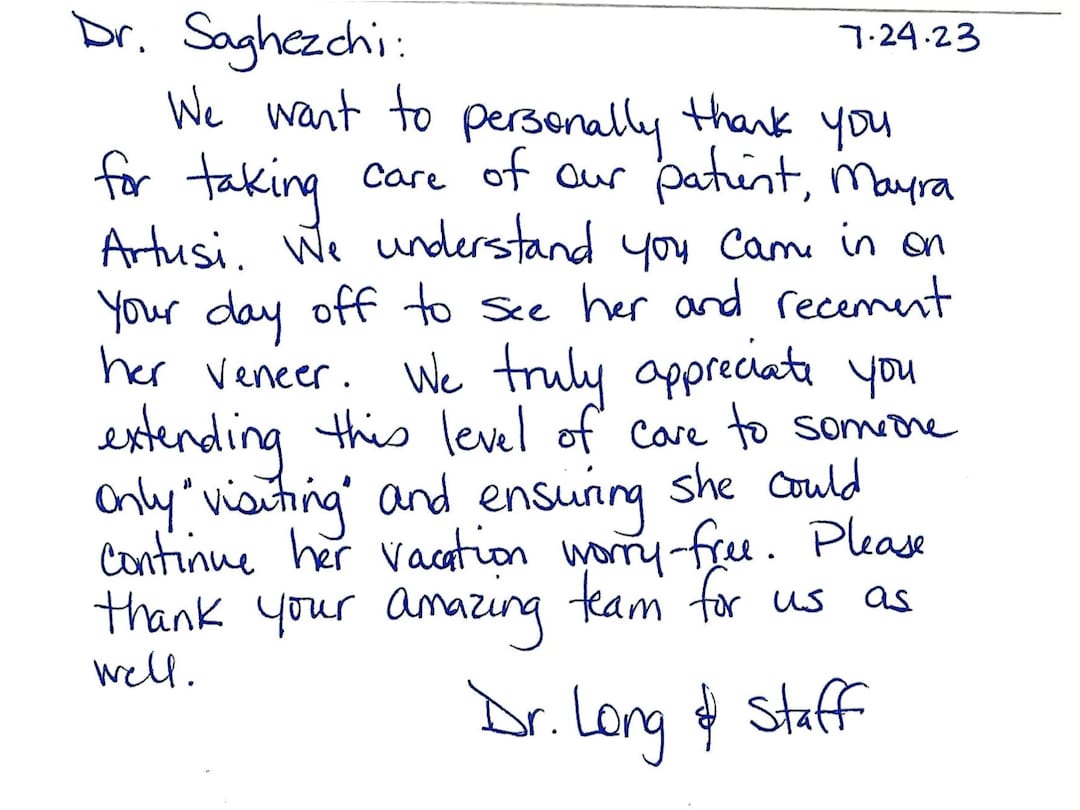 Dr. Saghezchi: 7.24.23
We want to personally thank you
for taking care of our patient, Mayra
Artusi. We understand you came in on
your day off to see her and recement
her veneer. We truly appreciate you
extending this level of care to someone
only "visiting" and ensuring she could
continue her vacation worry-free. Please
thank your amazing team for us as
well.
Dr. Long & Staff